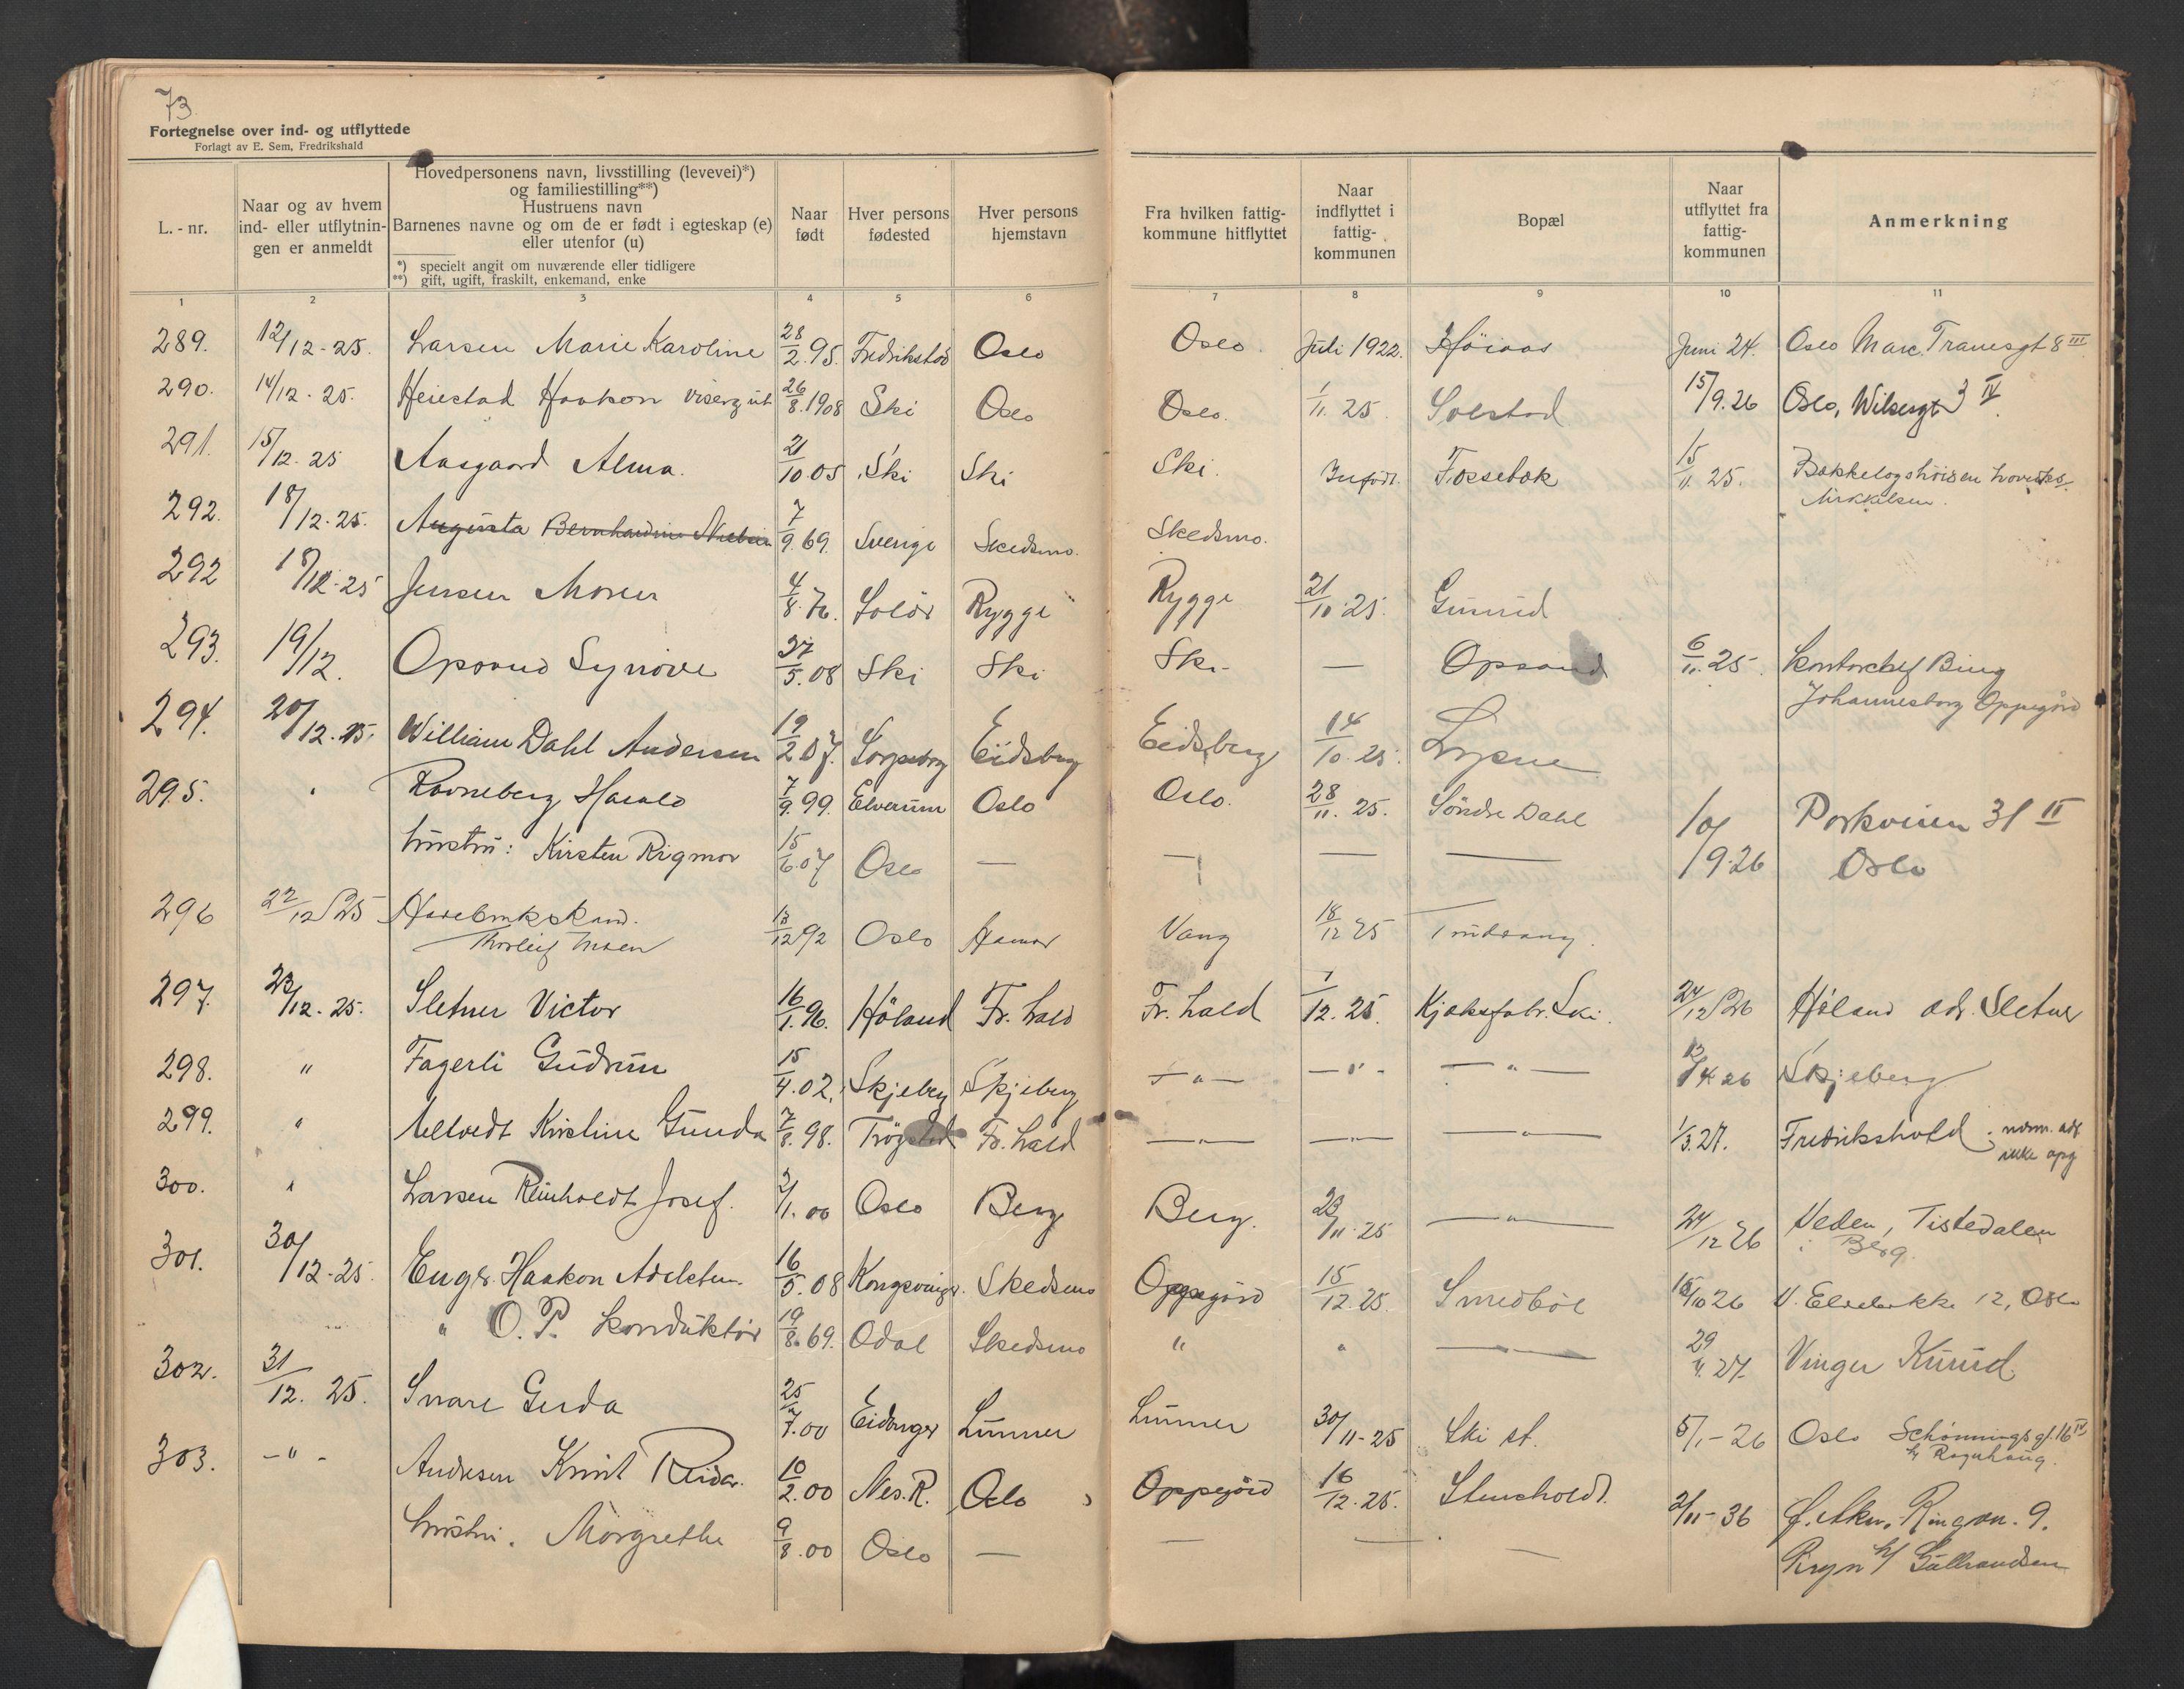 73
Fortegnelse over ind- og utflyttede
Forlagt av E. Sem, Fredrikshald
L.-nr.
Naar og av hvem
ind- eller utflytnin-
gen er anmeldt
Hovedpersonens navn, livsstilling (levevei)*)
og familiestilling**)
Hustruens navn
Barnenes navne og om de er født i egteskap (e)
eller utenfor (u)
*) specielt angit om nuværende eller tidligere
**) gift, ugift, fraskilt, enkemand, enke
Naar
født
Hver persons
fødested
Hver persons
hjemstavn
Fra hvilken fattig-
kommune hitflyttet
Naar
indflyttet i
fattig-
kommunen
Bopæl
Naar
utflyttet fra
fattig-
kommunen
Anmerkning
1 2 3 4 5 6 7 8 9 10 11
289. 12/12-25. Larsen Marie Karoline 28/2.95. Fredrikstad Oslo Oslo. Juli 1922. Juni 24. Oslo Marc. Tranesgt 8 III
290. 14/12.25. Heiestad Haakon 26/8.1908 Ski Oslo Oslo. 1/11.25. Solstad 15/9.26 Oslo, Wilsesgt 3 IV.
291. 15/12.25 Aasgaard Alma. 21/10 05 Ski Ski Ski. Infødt. Fossebæk 15/11 25.
Mikkelsen.
292. 18/12.25. Augusta Bernhardine 7/9.69. Sverige Skedsmo. Skedsmo.
292 18/12-25 Jensen 4/8.76. Solør Rygge Rygge 21/10.25.
293. 19/12. Opsand Synøve 27/5.08 Ski Ski Ski — Opsand 6/11.25. Kontorchef Bing
Johannesborg Oppegård
294. 20/12.25. William Dahl Andersen 19/2 07. Sarpsborg Eidsberg Eidsberg 14/10.25.
295. " Ravneberg Harald 7/9.99. Elverum Oslo Oslo. 28/11.25. Søndre Dahl 10/9.26 Parkveien 31 II
Oslo
hustru: Kirsten Rigmor 15/6 07 Oslo — — — —
296 22/12 25
Thorleif 13/12 92 Oslo Hamar Vang 18/12 25
297. 23/12.25. Sletner Victor 16/1.96. Høland Fr. hald Fr. hald 1/12.25. Kjeksfabr. Ski. 24/12 26 Høland adr. Sletner
298. " Fagerli Gudrun 15/4.02. Skjeberg Skjeberg — " — — " - — " — 4 26 Skjeberg
299. " Kirstine Gunda 7/8.98. Trøgstad Fr. hald — " — — " — — " — 1/3.27. Fredrikshald ; nærm. adr.
ikke opg
300. " Larsen Reinholdt Josef. 2/1.00 Oslo Berg Berg. 23/11-25 — " — 24/12 26 Veden, Tistedalen
i Berg.
301. 30/12-25. Enger Haakon Adelsten. 16/5.08 Kongsvinger. Skedsmo Oppegård 15/12.25. Smedbøl 15/10 26
" O. P. Konduktør 19/8.69. Odal Skedsmo " " — 29/4.27 Vinger
302. 31/12. 25. Snare Gerda 25/7.00 Eidanger Lunner Lunner 30/11-25 Ski st. 5/1-26 Oslo Schønnings gt. 16 IV
303. - " - Andresen Knut Reidar. 10/2.00 Nes. R. Oslo Oppegård 16/12.25. Stenholdt. 2/11-36
hustru. Margrethe 9/8.00 Oslo — — — —